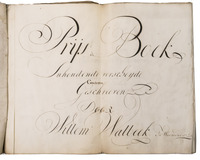 Prijs Boek
Inhoudende verscheyde
Geschreven
Door
Willem Walbeek